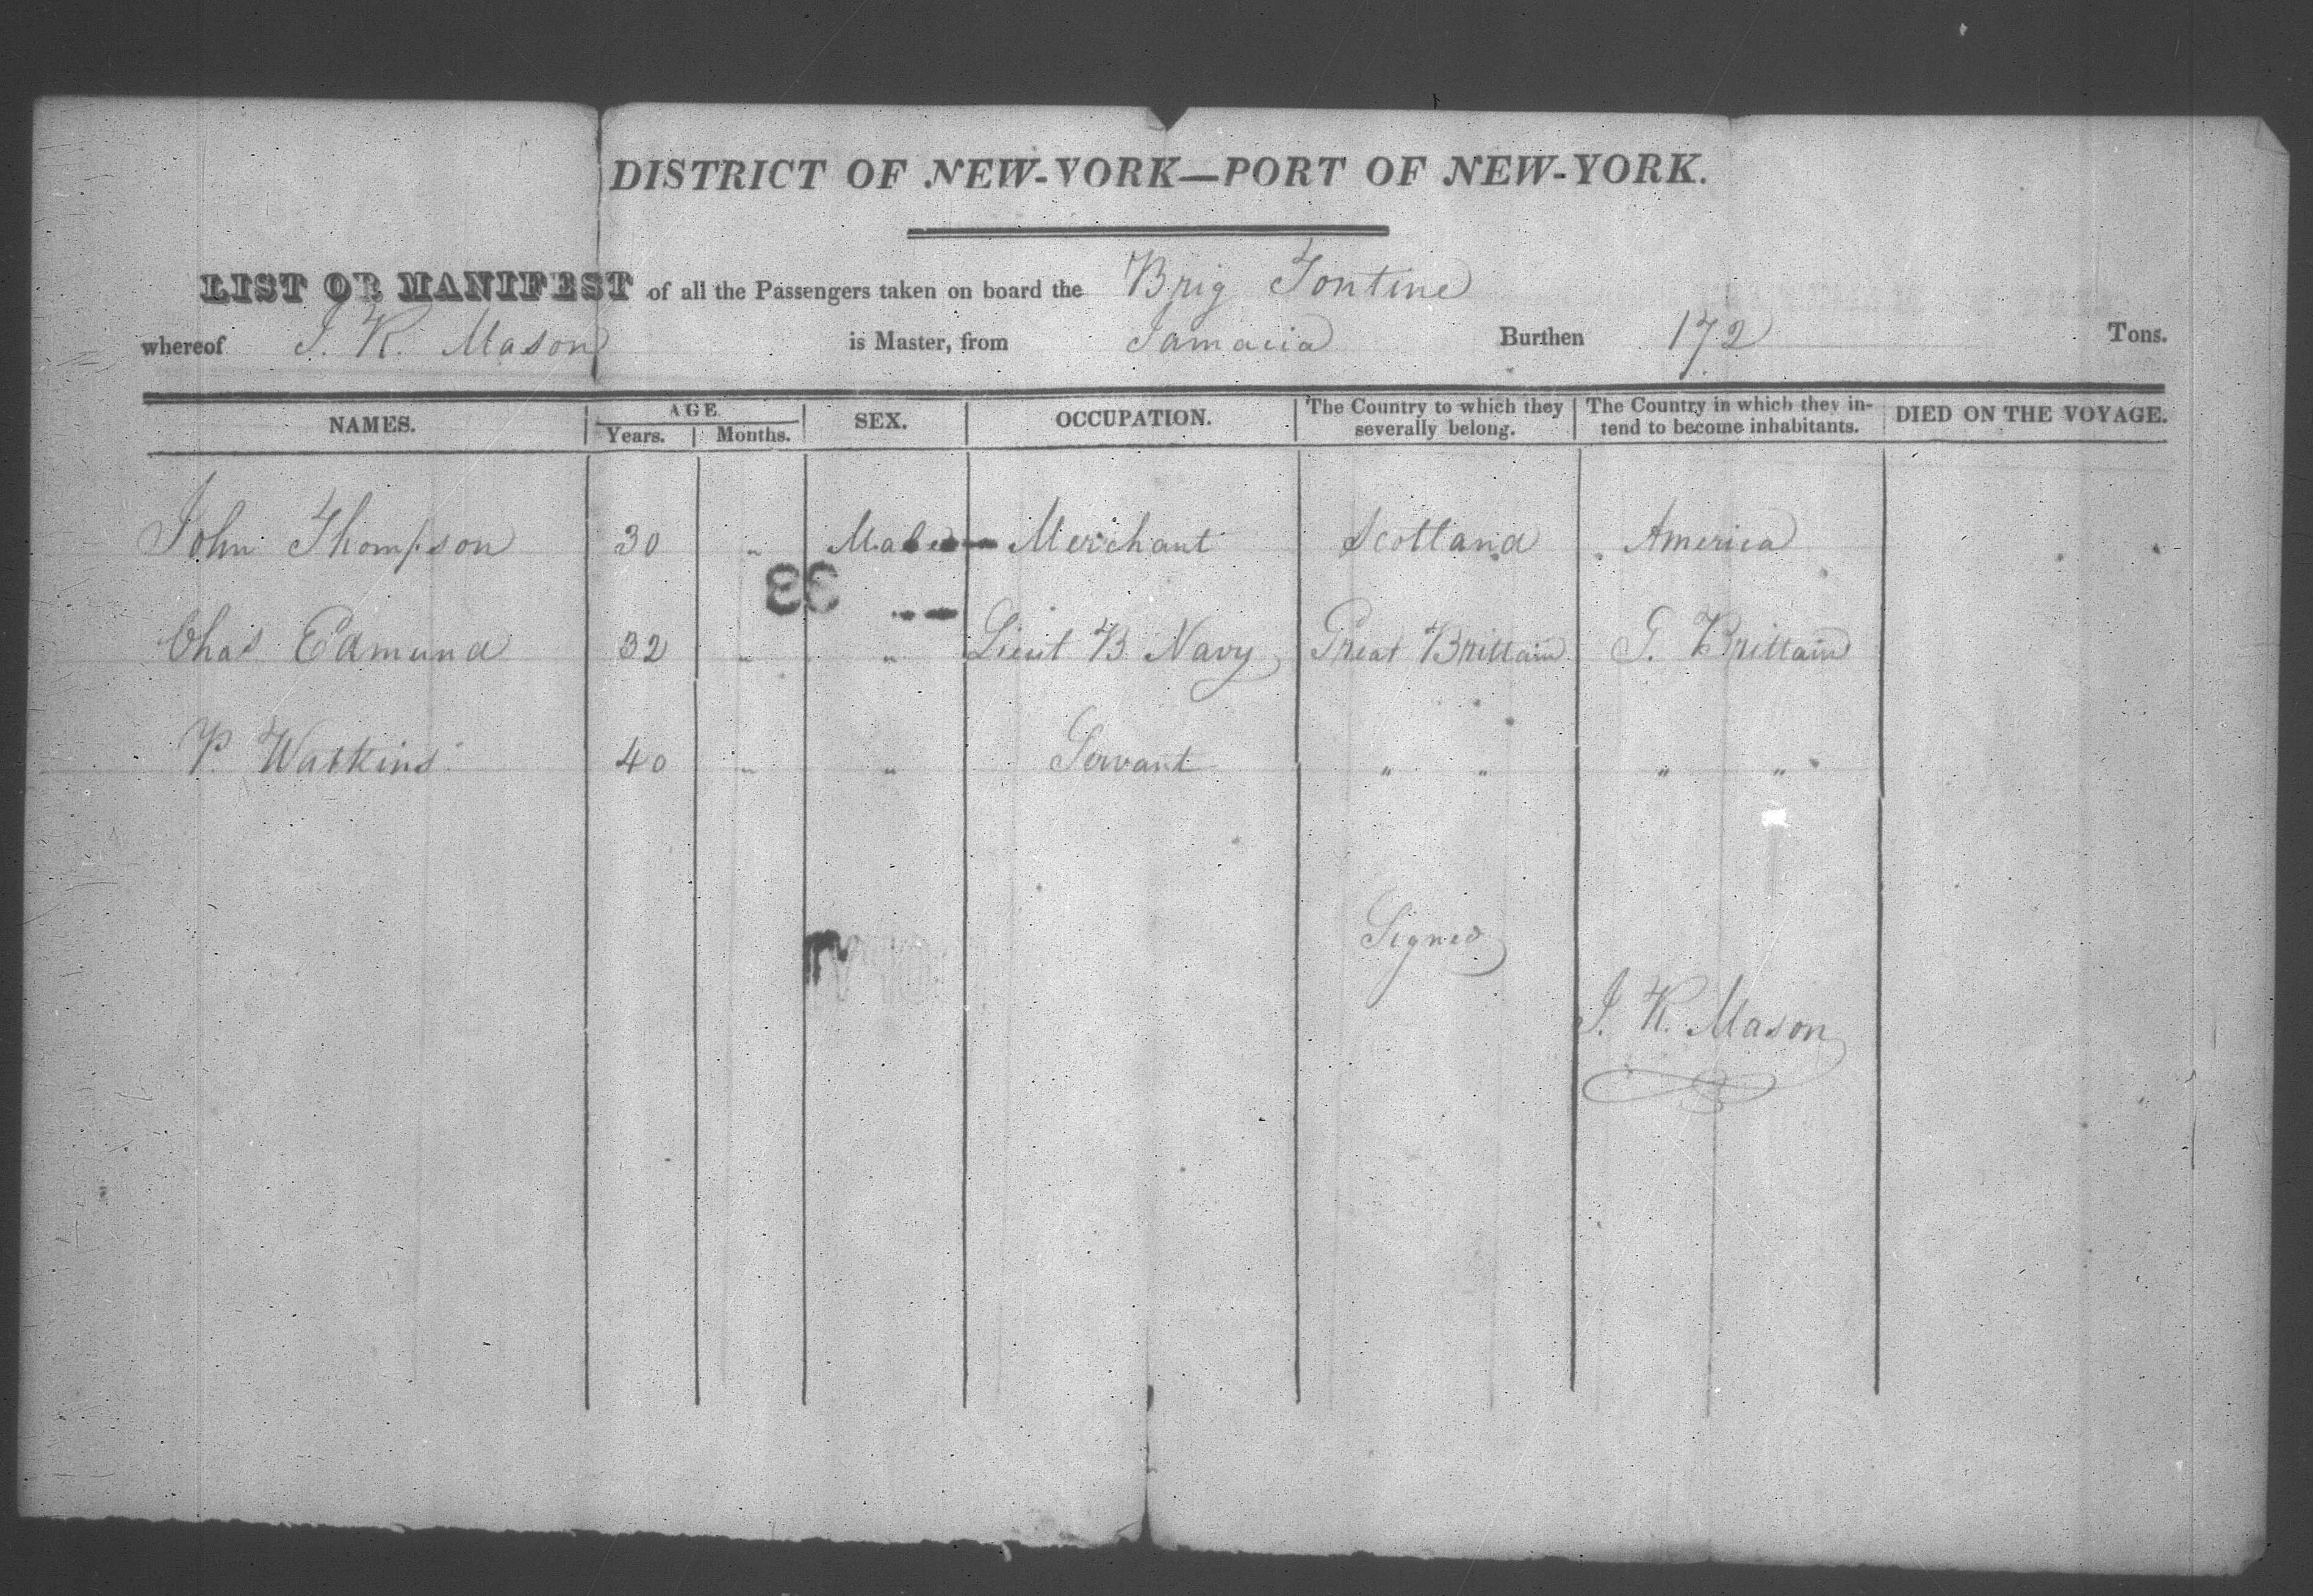 DISTRICT OF NEW-YORK—PORT OF NEW-YORK.
LIST OR MANIFEST of all the Passengers taken on board the Brig Tontine
whereof J. K. Mason is Master, from Jamacia Burthen 172 Tons.
NAMES. AGE SEX. OCCUPATION. The Country to which they severally belong. The Country in which they in-tend to become inhabitants. DIED ON THE VOYAGE.
Years. Months.
John Thompson 30 " Male Merchant Scotland America
33
Chas Edmund 32 " " Lieut B Navy Great Brittain G. Brittain
P. Watkins 40 " " Servant " " " "
Signed
J. K. Mason